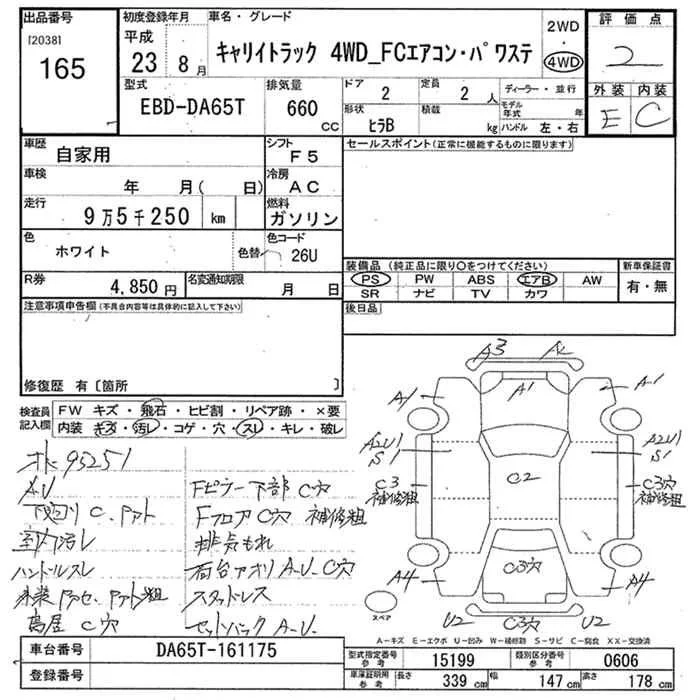 出品番号 初度登録年月 車名・グレード 2WD 評価点
[2038] 平成 ・
165 23 8月 キャリイトラック 4WD_FCエアコン・パワステ 4WD 2
型式 排気量 ドア 定員 ディーラー・並行 外装 内装
EBD-DA65T 660 CC 2 2人 モデル年式 年 E C
形状 積載
ヒラB kg ハンドル 左・右
車歴 シフト セールスポイント(正常に機能するものに限ります)
自家用 F5
車検 冷房
年 月( 日) AC
走行 燃料
9万5千250 km ガソリン
色 色替 色コード
ホワイト 26U
装備品 (純正品に限り〇をつけてください) 新車保証書
R券 名変通知期限 PS PW ABS エアB AW 有・無
4,850円 月 日 SR ナビ TV カワ
注意事項申告欄(不具合内容等は具体的に記入して下さい) 後日品
修復歴 有〔箇所 〕
検査員記入欄 FW キズ・飛石・ヒビ割・リペア跡・×要
内装 キズ・汚レ・コゲ・穴・スレ・キレ・破レ
A3 A1 A1 A1
A2U1 S1 A2U1 S1
C3 補修粗 C2 C3穴 補修粗
A4 C3穴 A4
スペア U2 C3穴 U2
95251
AU Fピラー下部 C穴
下廻り C Fフロア C穴 補修粗
室内汚レ 排気もれ
ハンドルスレ 荷台アオリ A.U.C穴
スタッドレス
C穴 セットバック A.U.
A-キズ E-エクボ U-凹み W-補修跡 S-サビ C-腐食 XX-交換済
車台番号 DA65T-161175 型式指定番号 参考 15199 類別区分番号 参考 0606
登録番号 車庫証明用 参考 長さ 339 cm 幅 147 cm 高さ 178 cm